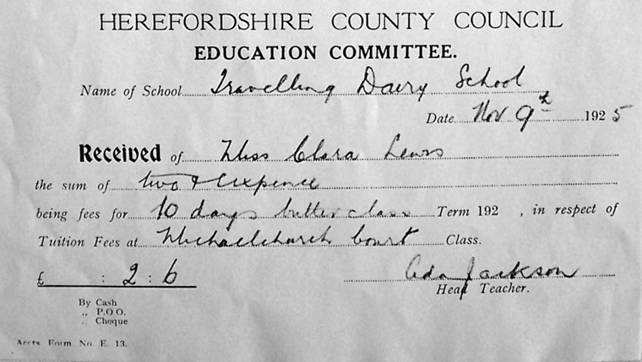 HEREFORDSHIRE COUNTY COUNCIL
EDUCATION COMMITTEE.
Name of School Travelling Dairy School
Date Nov 9th 1925
Received of Miss Clara Lewis
the sum of two & sixpence
being fees for 10 days butter class Term 192 , in respect of
Tuition Fees at Michaelchurch Court Class.
£ : 2 : 6 Ada Jackson
Head Teacher.
By Cash
„ P.O.O.
„ Cheque
Accts Form No. E. 13.